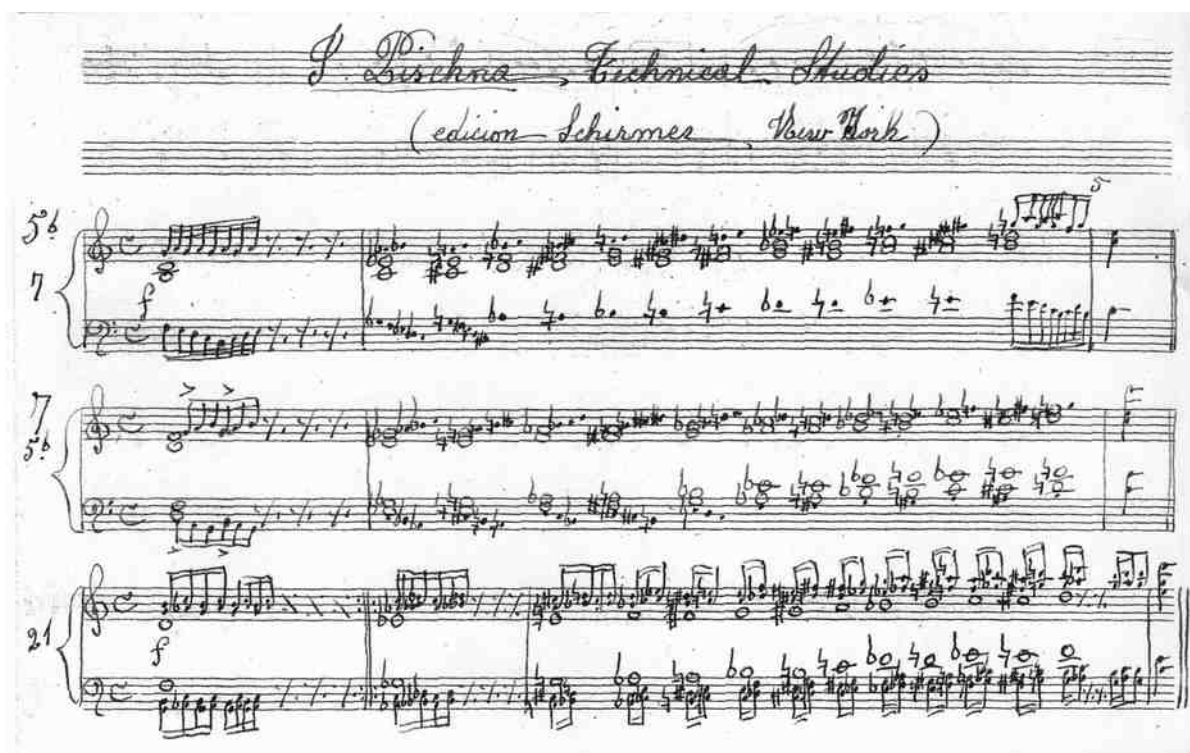 J. Pischna, Technical Studies
(edicion Schirmer, New York)
5b
7
f
5
7
5b
21
f